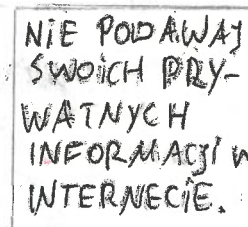 NIE PODAWAJ
SWOICH PRY-
WATNYCH
INFORMACJI W
INTERNECIE.